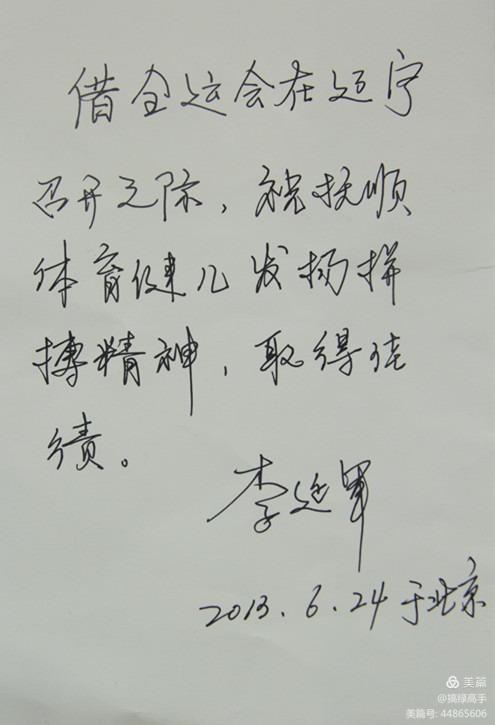 借全运会在辽宁
召开之际，祝抚顺
体育健儿发扬拼
搏精神，取得佳
绩。
李延军
2013.6.24于北京
美篇
@搞绿高手
美篇号: 44865606